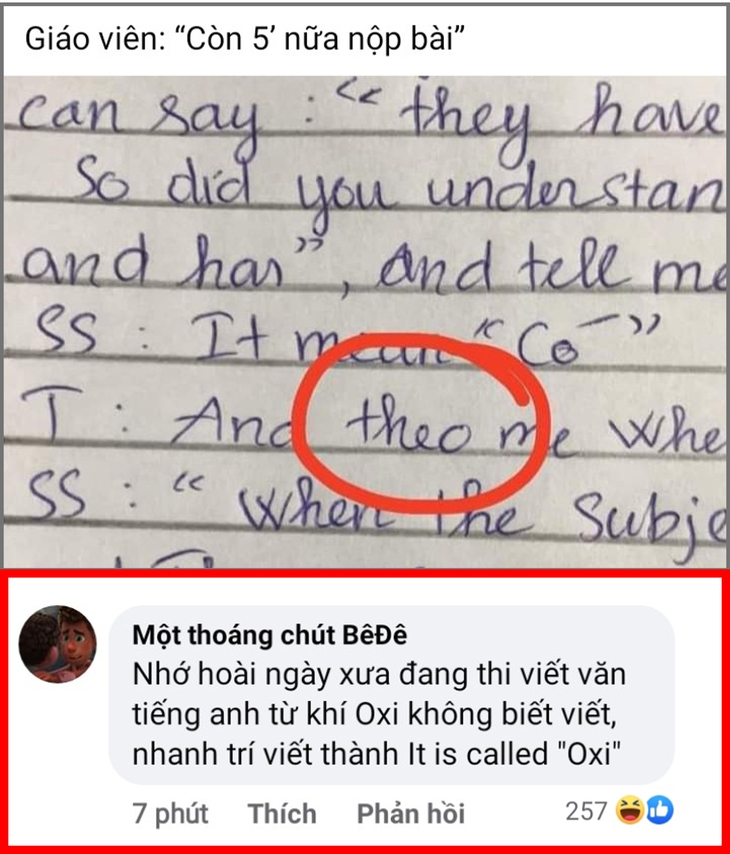 Giáo viên: “Còn 5’ nữa nộp bài”
can say : “ they have
So did you understan
and has”, and tell me
SS : It mean “Có”
T : And theo me Whe
SS : “ When the Subje
Một thoáng chút BêĐê
Nhớ hoài ngày xưa đang thi viết văn
tiếng anh từ khí Oxi không biết viết,
nhanh trí viết thành It is called "Oxi"
7 phút Thích Phản hồi 257